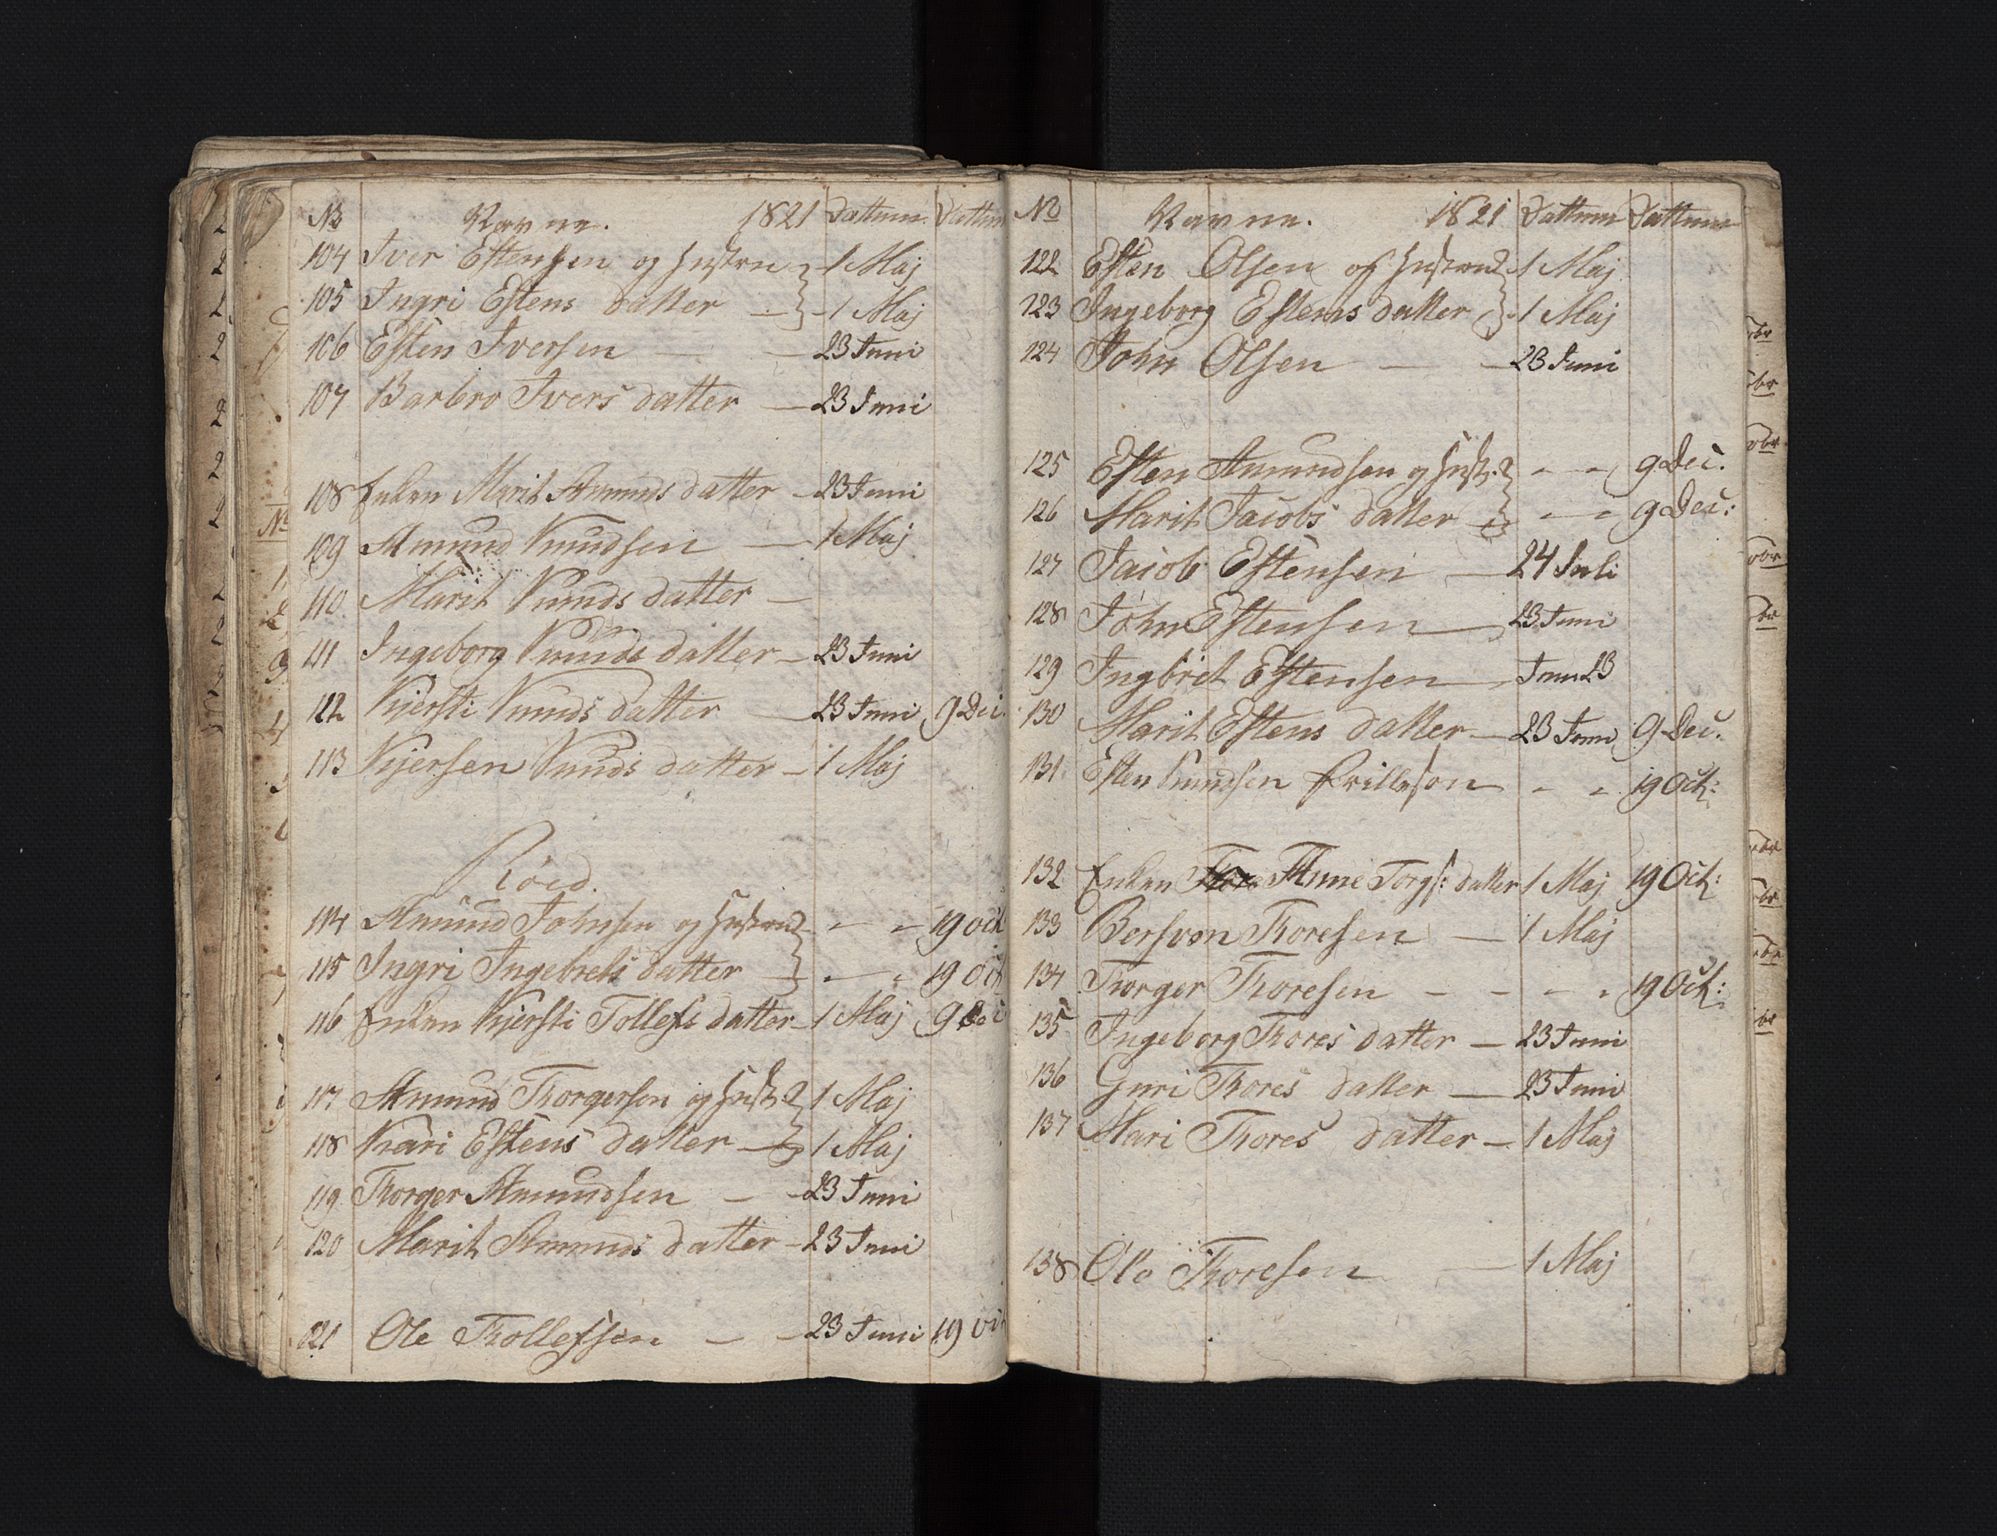 No Navne. 1821 Dattum Dattum
104 Iver Estensen og Hustru 1 Maj
105 Ingri Estens datter 1 Maj
106 Esten Iversen 23 Juni
107 Barbro Ivers datter 23 Juni
108 Enken Marit Amunds datter 23 Juni
109 Amund Knudsen 1 Maj
110 Marit Knuds datter
111 Ingeborg Knuds datter 23 Juni
112 Kjersti Knuds datter 23 Juni 9 Dec
113 Kjersen Knuds datter 1 Maj
Röed.
114 Amund Johnsen og Hustrue " " 19 Oct
115 Ingri Ingebrets datter " " 19 Oct
116 Enken Kjersti Tollefs datter 1 Maj 9 Dec
117 Amund Thorgersen og Hust. 1 Maj
118 Kari Estens datter 1 Maj
119 Thorger Amundsen 23 Juni
120 Marit Amunds datter 23 Juni
121 Ole Thollefsen 23 Juni 19 Oc
No Navne. 1821 Dattum Dattum
122 Esten Olsen og Hustrue 1 Maj
123 Ingeborg Estens datter 1 Maj
124 John Olsen 23 Juni
125 Esten Amundsen og Hust. " " 9 Dec.
126 Marit Jacobs datter " " 9 Dec:
127 Jacob Estensen 24 Juli
128 John Estensen 23 Juni
129 Ingbret Estensen Juni 23
130 Marit Estens datter 23 Juni 9 Dec.
131 Esten Knudsen " " 19 Oct:
132 Enken Anne Torgs: datter 1 Maj 19 Oct:
133 Bersvon Thoresen 1 Maj
134 Thorger Thoresen " " 19 Oct:
135 Ingeborg Thores datter 23 Juni
136 Guri Thores datter 23 Juni
137 Mari Thores datter 1 Maj
138 Ole Thoresen 1 Maj